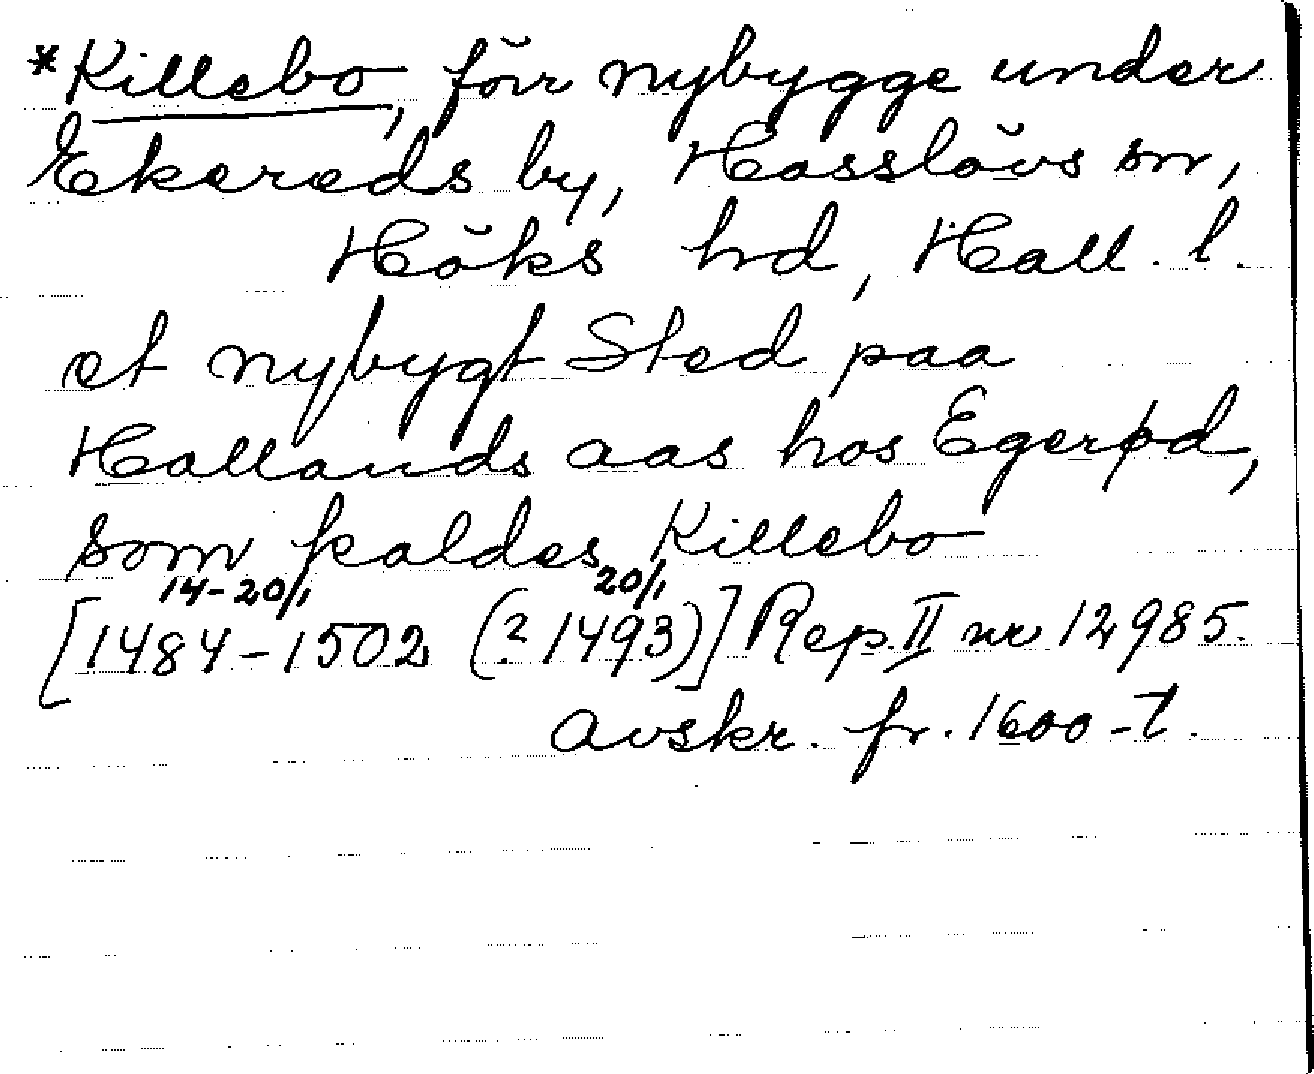 *Killebo, förr nybygge under
Ekereds by, Hasslövs sn,
Höks hd, Hall. l.
et nybygt Sted paa
Hallands aas hos Egerød,
som kaldes Killebo
14-20/1 20/1
[1484-1502 (? 1493)] Rep. II nr 12985.
Avskr. fr. 1600-t.